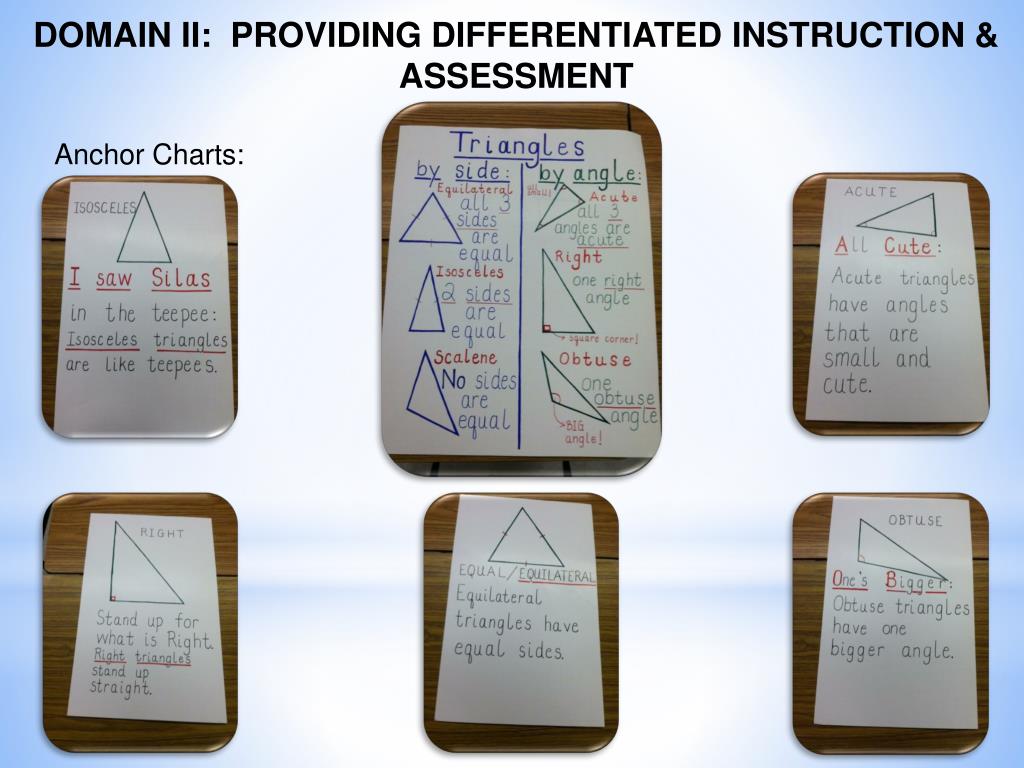 DOMAIN II: PROVIDING DIFFERENTIATED INSTRUCTION &
ASSESSMENT
Anchor Charts:
ISOSCELES
I saw Silas
in the teepee:
Isosceles triangles
are like teepees.
Triangles
by side:
Equilateral
all 3
sides
are
equal
Isosceles
2 sides
are
equal
Scalene
No sides
are
equal
by angle:
all
small!
Acute
all 3
angles are
acute
Right
one right
angle
square corner!
Obtuse
one
obtuse
angle
BIG
angle!
ACUTE
All Cute:
Acute triangles
have angles
that are
small and
cute.
RIGHT
Stand up for
what is Right.
Right triangles
stand up
straight.
EQUAL/EQUILATERAL
Equilateral
triangles have
equal sides.
OBTUSE
One's Bigger:
Obtuse triangles
have one
bigger angle.